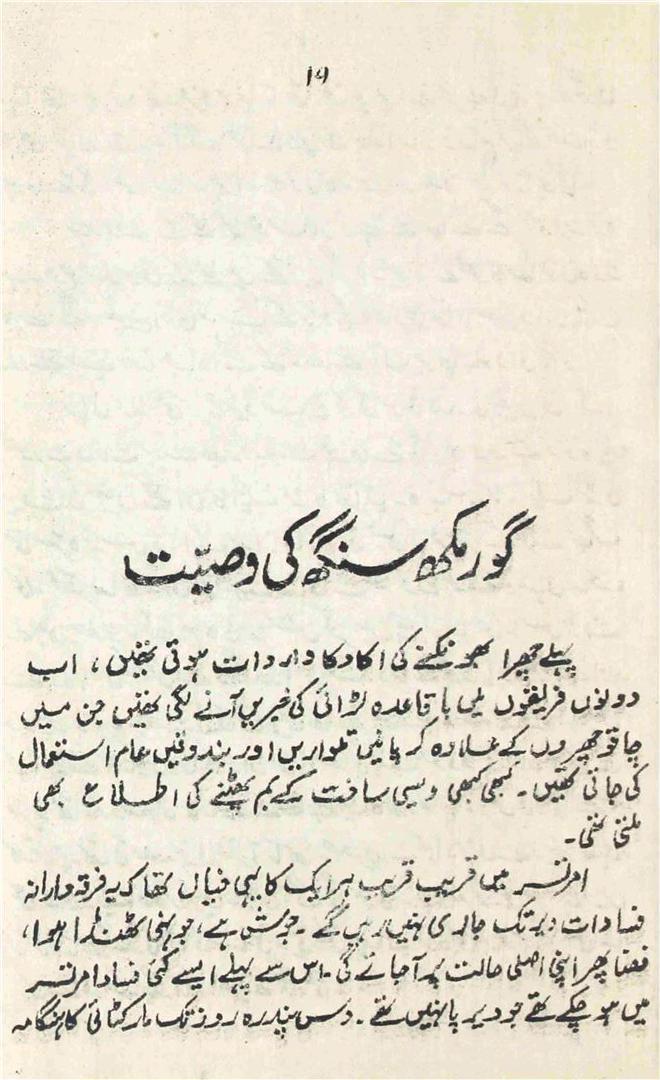 ۱۹
گورمکھ سنگھ کی وصیّت
پہلے چھرا بھونکنے کی اکا دکا واردات ہوتی تھیں، اب
دونوں فریقوں میں باقاعدہ لڑائی کی خبریں آنے لگی تھیں جن میں
چاقو چھروں کے علاوہ کرپانیں تلواریں اور بندوقیں عام استعمال
کی جاتی تھیں۔ کبھی کبھی دیسی ساخت کے بم پھٹنے کی اطلاع بھی
ملتی تھی۔
امرتسر میں قریب قریب ہر ایک کا یہی خیال تھا کہ یہ فرقہ وارانہ
فسادات دیر تک جاری نہیں رہیں گے۔ جوش ہے، جونہی ٹھنڈا ہوا،
فضا پھر اپنی اصلی حالت پر آجائے گی۔ اس سے پہلے ایسے کئی فساد امرتسر
میں ہوچکے تھے جو دیرپا نہیں تھے۔ دس پندرہ روز تک مار کٹائی کا ہنگامہ